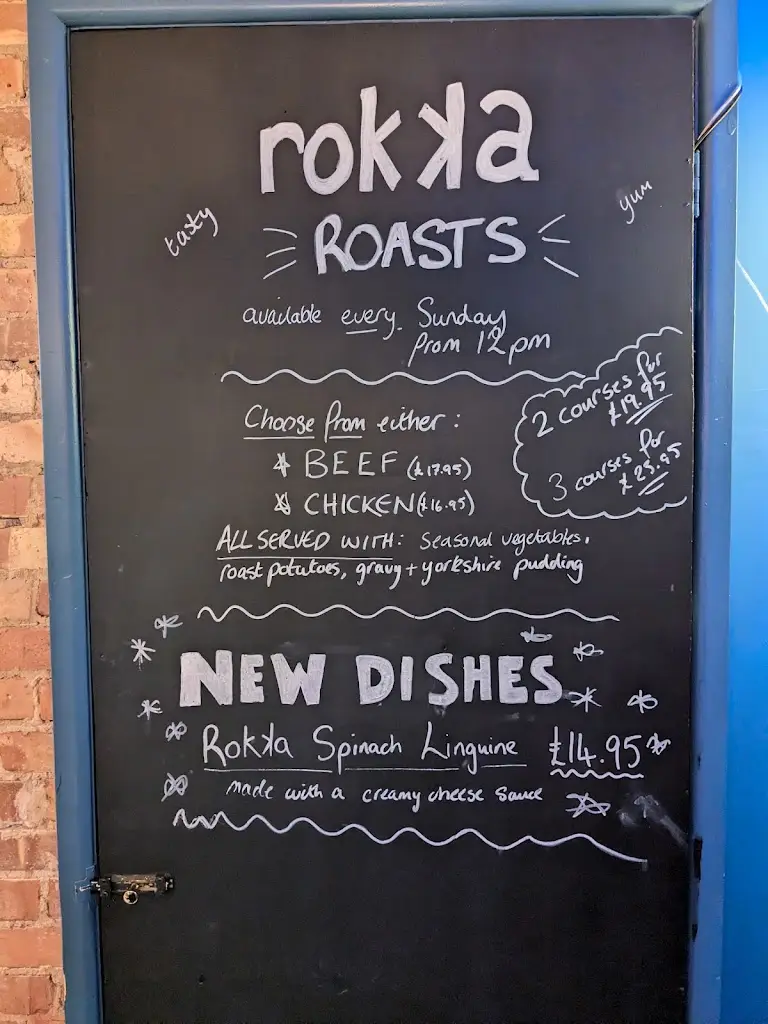 rokka
tasty
yum
ROASTS
available every Sunday
from 12pm
2 courses for
£19.95
3 courses for
£25.95
Choose from either:
BEEF (£17.95)
CHICKEN (£16.95)
ALL SERVED WITH: Seasonal vegetables,
roast potatoes, gravy + yorkshire pudding
NEW DISHES
Rokka Spinach Linguine £14.95
made with a creamy cheese sauce